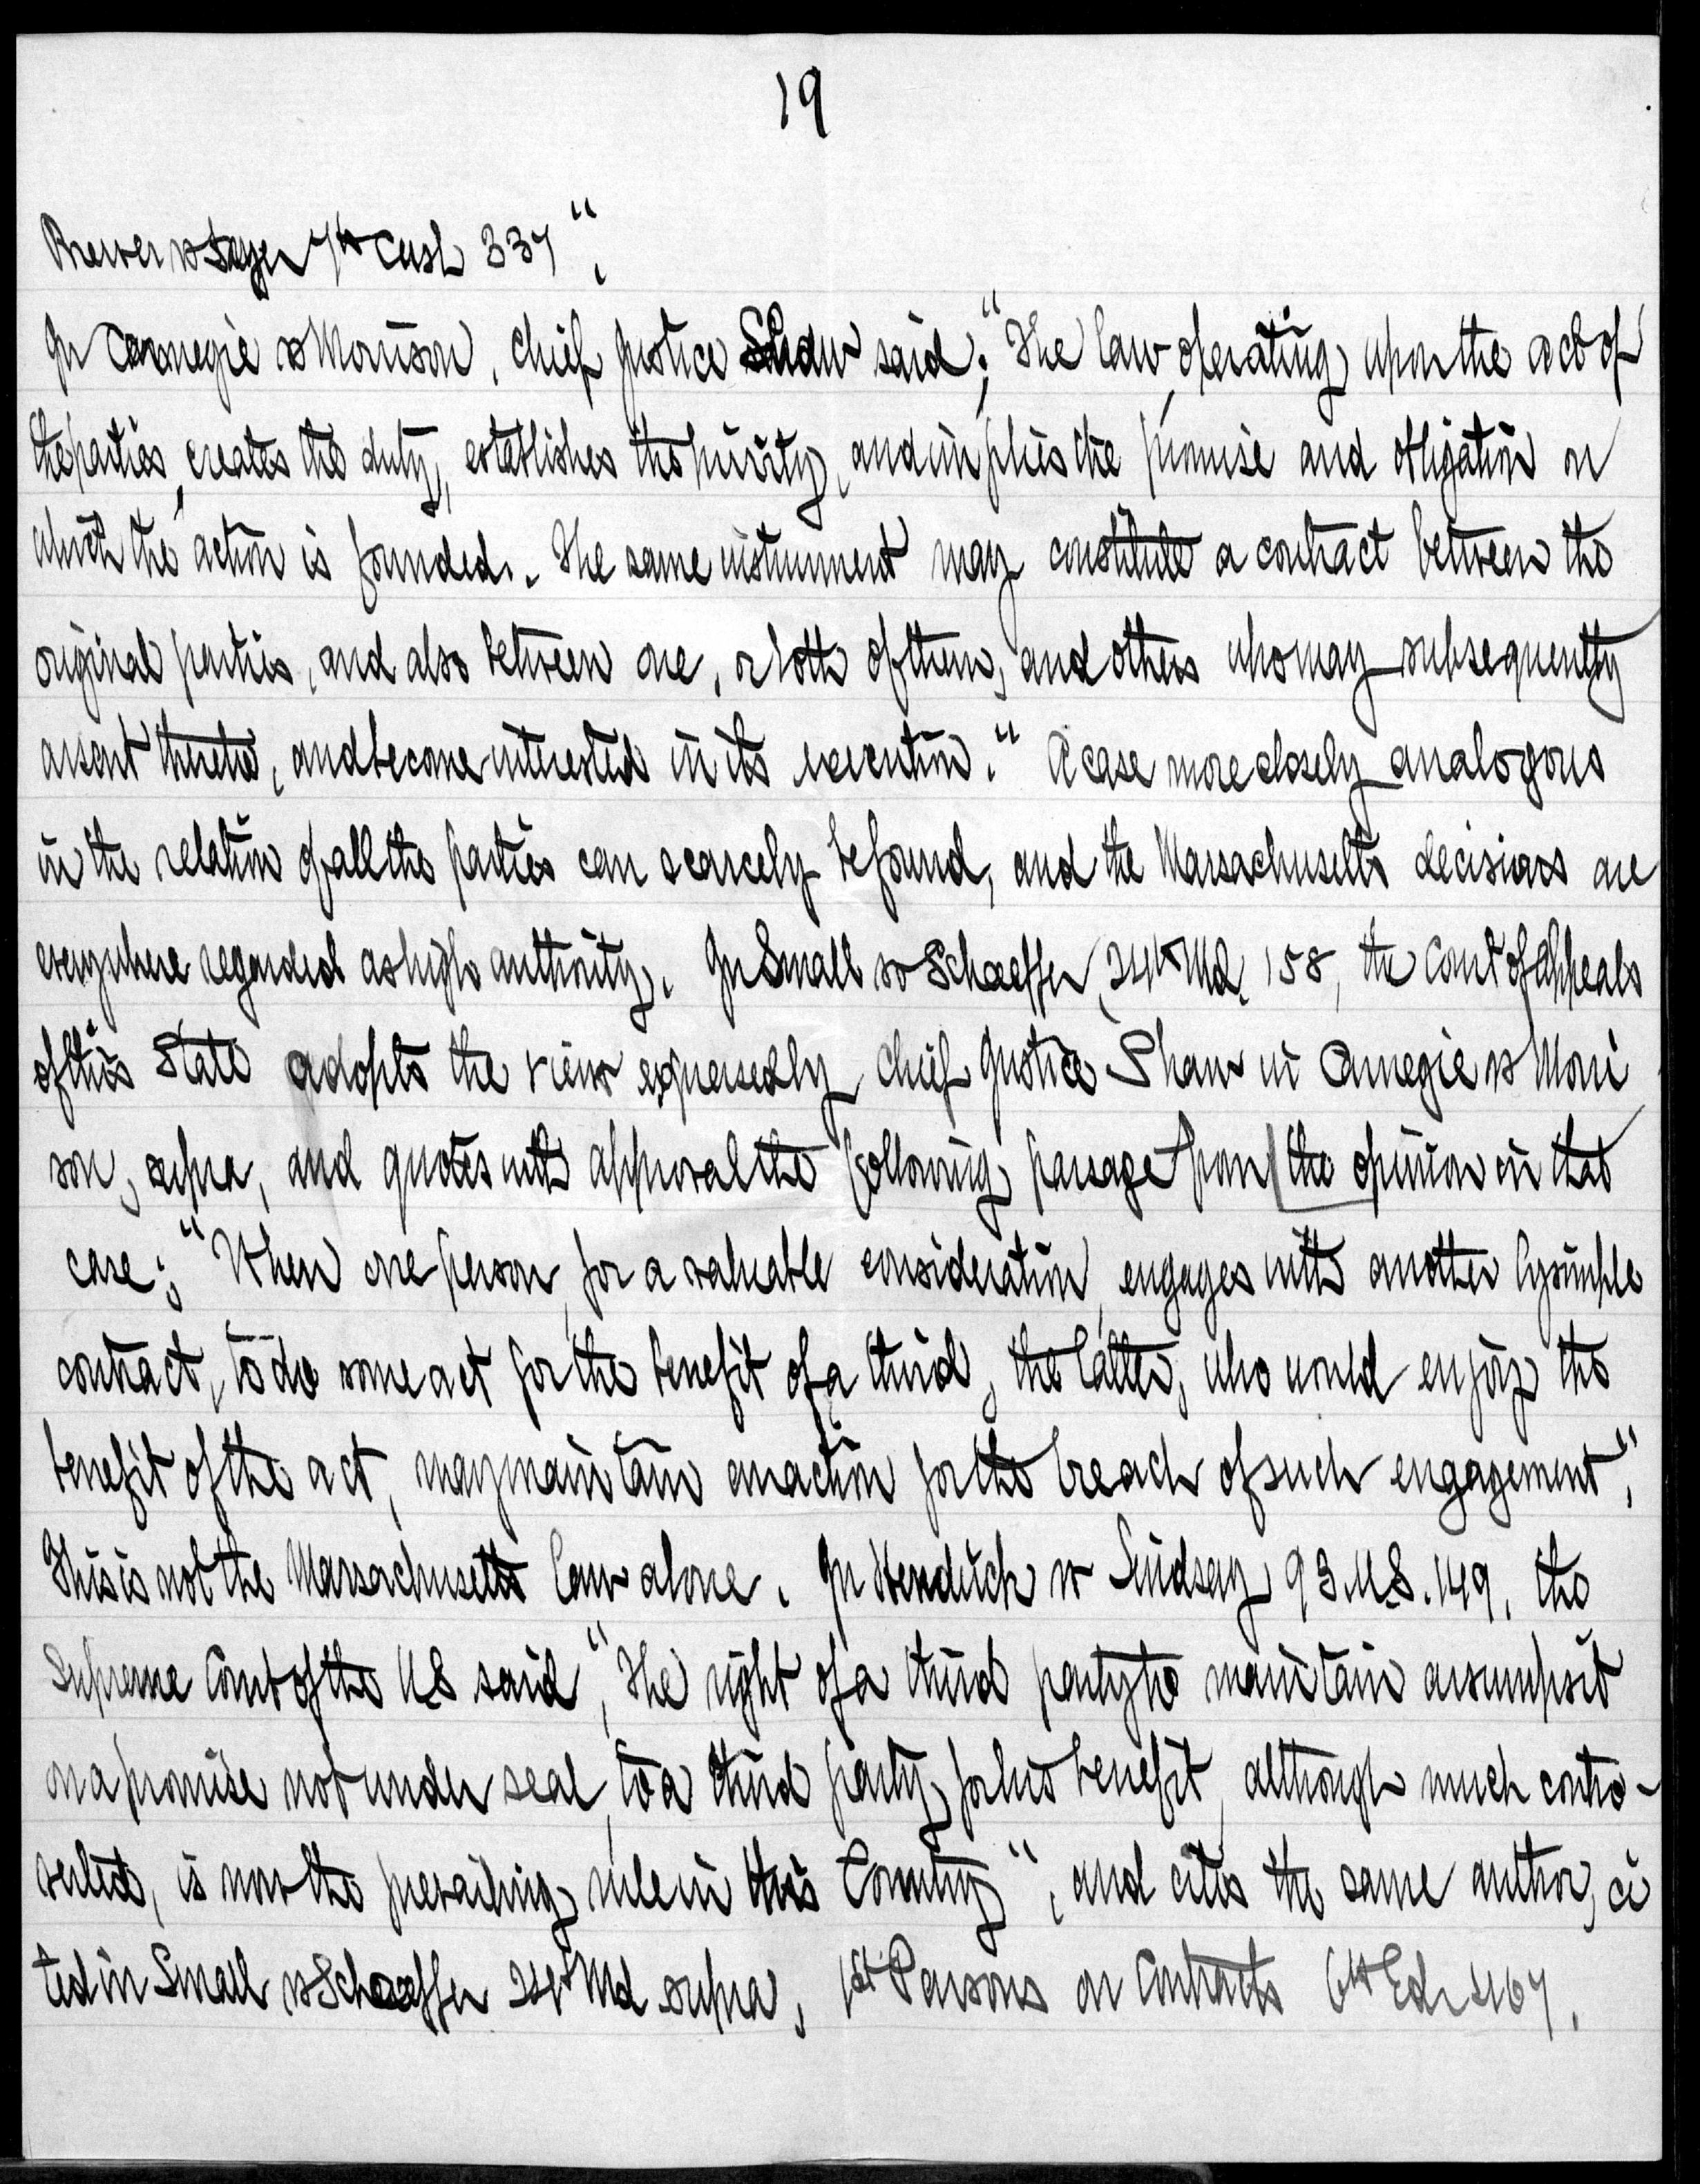 19
Brewer vs Dyer 7th Cush 337".
In Carnegie vs Morrison, Chief Justice Shaw said; "The law operating upon the act of
the parties, creates the duty, establishes the privity, and implies the promise and obligation on
which the action is founded. The same instrument may constitute a contract between the
original parties, and also between one, or both of them, and others who may subsequently
assent thereto, and become interested in its execution." A case more closely analogous
in the relation of all the parties can scarcely be found, and the Massachusetts decisions are
everywhere regarded as high authority. In Small vs Schaeffer, 24th Md. 158, the Court of Appeals
of this State adopts the view expressed by Chief Justice Shaw in Carnegie vs Morri
son, supra, and quotes with approval the following passage from the opinion in that
case; "When one person, for a valuable consideration, engages with another by simple
contract, to do some act for the benefit of a third, the latter, who would enjoy the
benefit of the act, may maintain an action for the breach of such engagement".
This is not the Massachusetts law alone. In Hendrick vs Lindsay 93 U.S. 149, the
Supreme Court of the U.S said, "The right of a third party to maintain assumpsit
on a promise not under seal, to a third party, for his benefit, although much contro-
verted, is now the prevailing rule in this Country", and cites the same author, ci
ted in Small vs Schaeffer 24th Md supra, 1st Parsons on Contracts 6th Ed. 467.